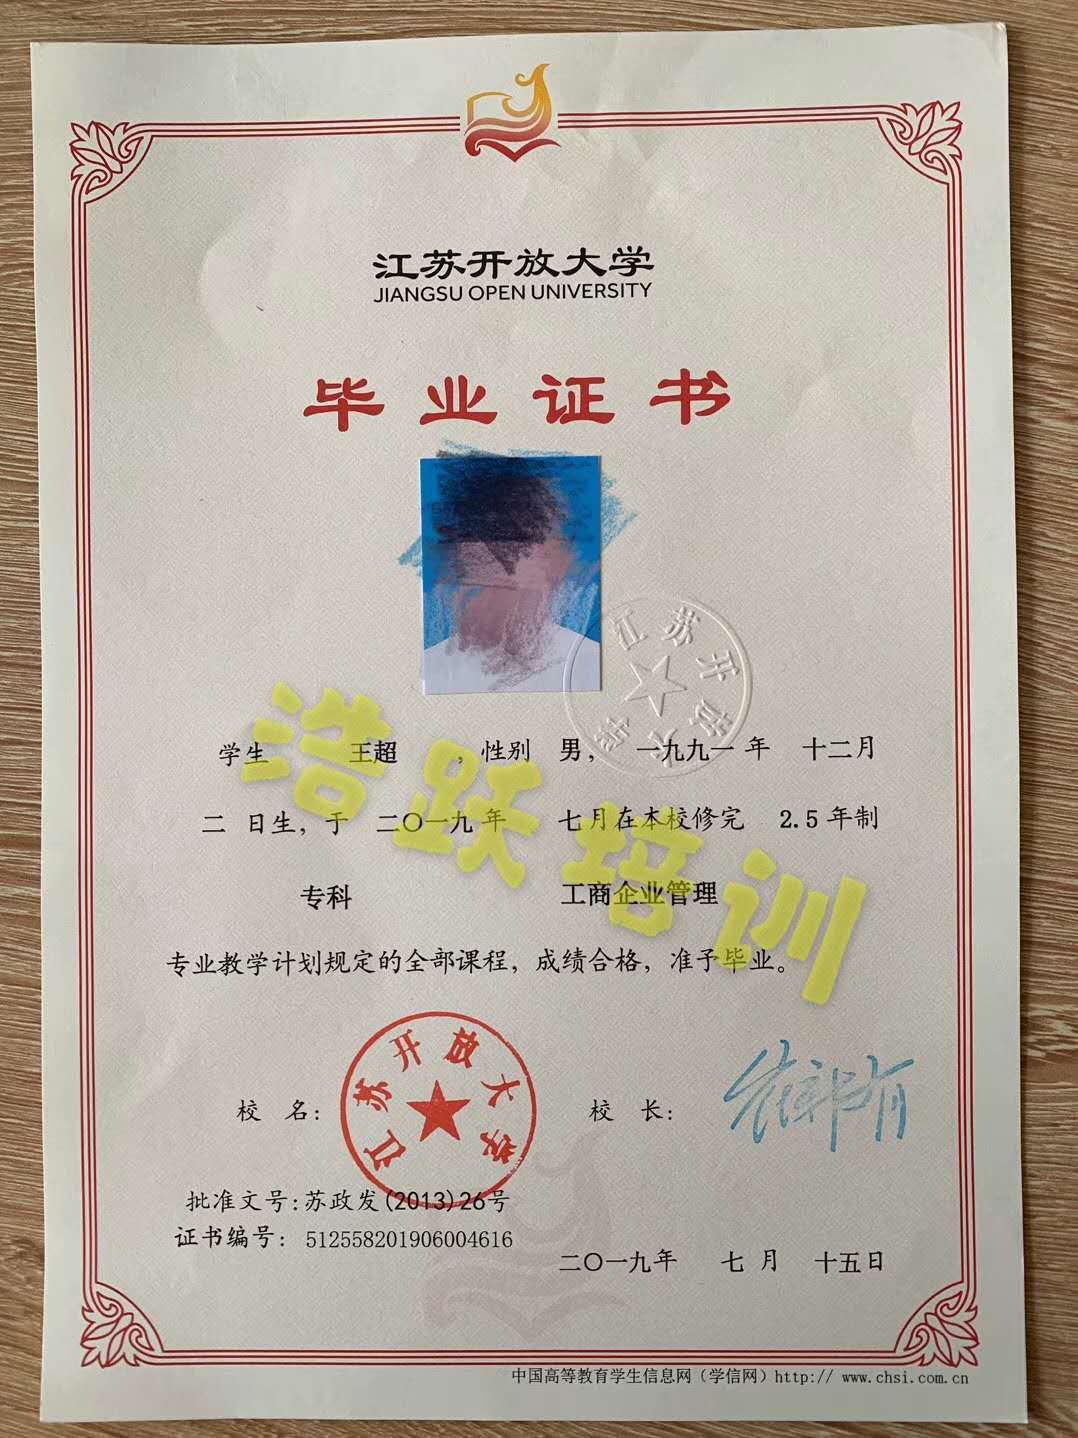 江苏开放大学
JIANGSU OPEN UNIVERSITY
毕业证书
江苏开放大学
学生 王超 ，性别 男， 一九九一 年 十二月
二 日生，于 二〇一九 年 七月在本校修完 2.5 年制
专科 工商企业管理
专业教学计划规定的全部课程，成绩合格，准予毕业。
浩跃培训
江苏开放大学
校 名： 校 长：
批准文号：苏政发(2013)26号
证书编号： 512558201906004616
二〇一九年 七 月 十五日
中国高等教育学生信息网（学信网）http:// www.chsi.com.cn